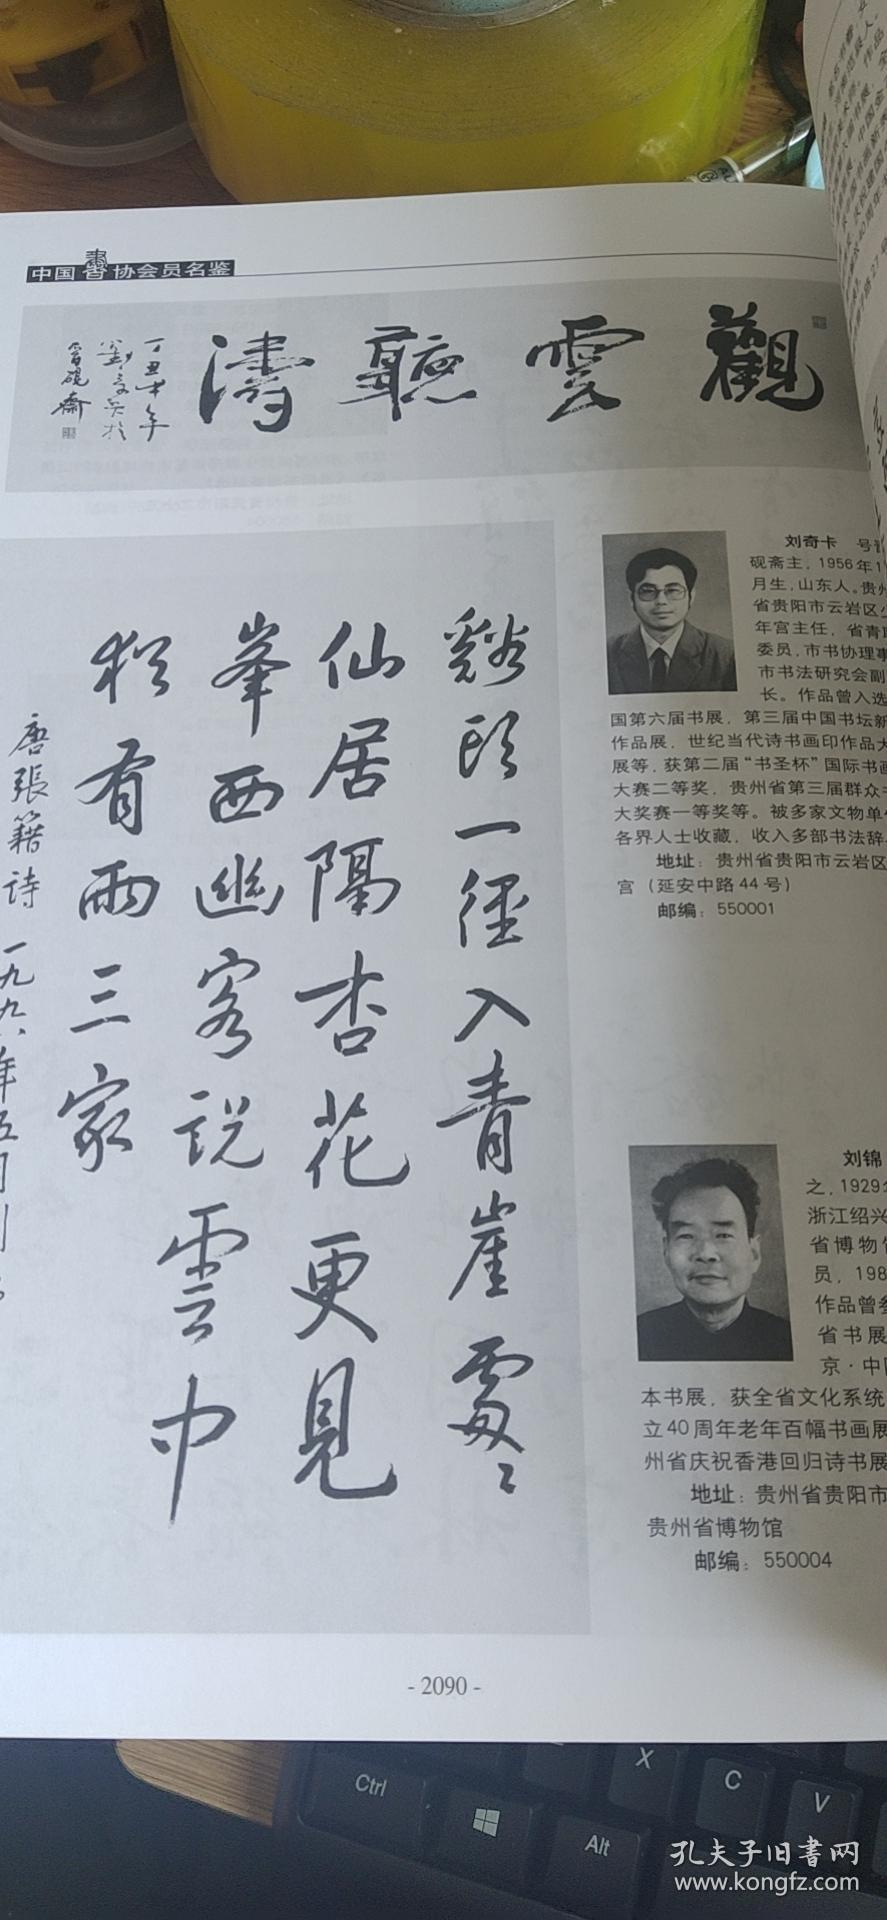 中国書协会员名鉴
觀雲聽濤
丁丑年
晋砚齋
谿頭一徑入青崖處々
仙居隔杏花更見
峯西幽客説雲中
猶有兩三家
唐張籍詩 一九九八年五月
刘奇卡 号
砚斋主，1956年1
月生，山东人。贵州
省贵阳市云岩区少
年宫主任，省青联
委员，市书协理事
市书法研究会副
长。作品曾入选
国第六届书展，第三届中国书坛新
作品展，世纪当代诗书画印作品大
展等，获第二届“书圣杯”国际书画
大赛二等奖，贵州省第三届群众书
大奖赛一等奖等。被多家文物单位
各界人士收藏，收入多部书法辞
地址：贵州省贵阳市云岩区
宫（延安中路44号）
邮编：550001
刘锦
之，1929年
浙江绍兴
省博物馆
员，198
作品曾参
省书展
京·中国
本书展，获全省文化系统
立40周年老年百幅书画展
州省庆祝香港回归诗书展
地址：贵州省贵阳市
贵州省博物馆
邮编：550004
- 2090 -
Ctrl
Alt
X
C
V
孔夫子旧书网
www.kongfz.com